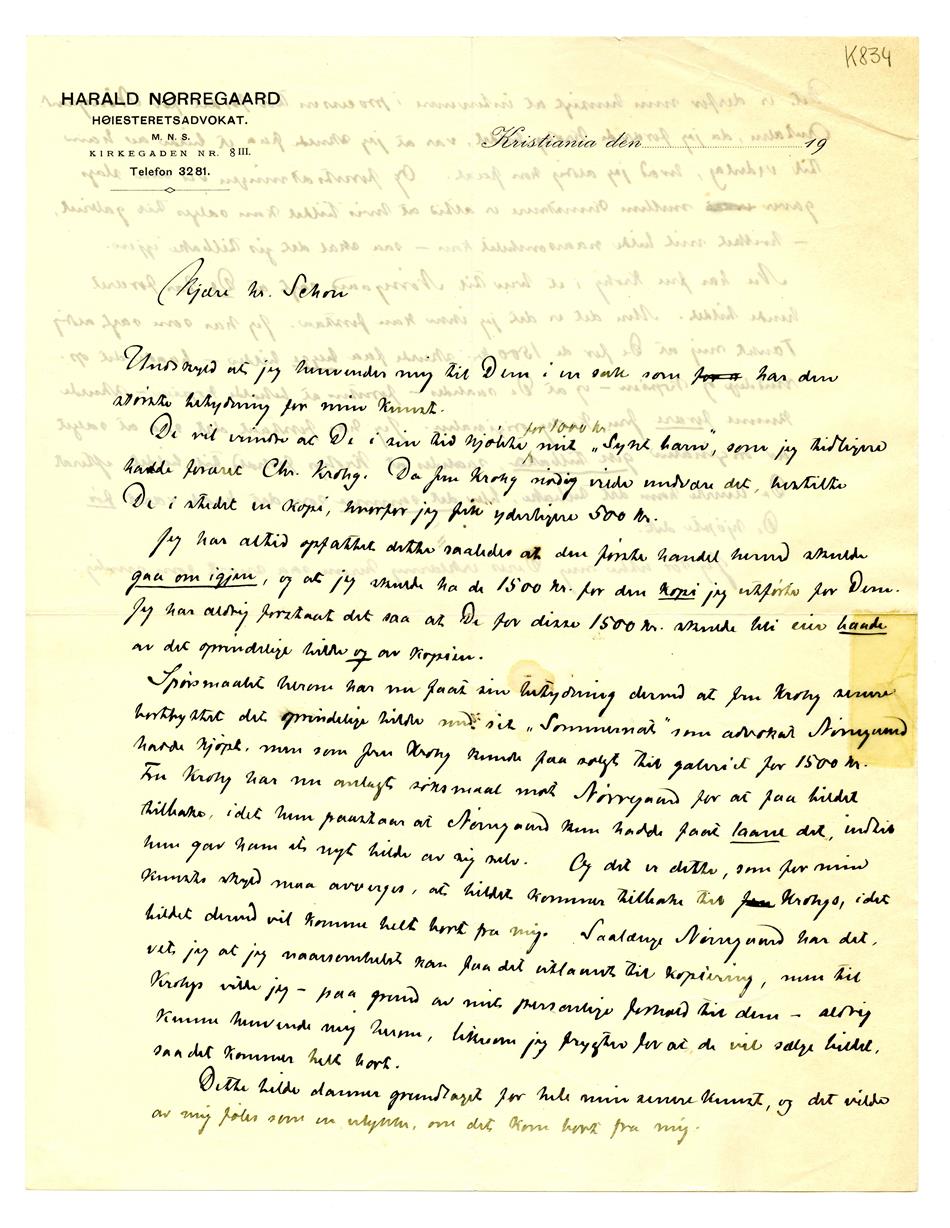 K834
HARALD NØRREGAARD
HØIESTERETSADVOKAT.
M. N. S.
KIRKEGADEN NR. 8 III.
Telefon 3281.
Kristiania den 19
Kjære hr. Schou
Undskyld at jeg henvender mig til Dem i en sak som har den
største betydning for min Kunst.
De vil erindre at De i sin tid kjøbte for 1000 kr mit „Sykt barn", som jeg tidligere
hadde foræret Chr. Krohg. Da fru Krohg nødig vilde undvære det, bestilte
De i stedet en Kopi, hvorfor jeg fik yderligere 500 Kr.
Jeg har altid opfattet dette saaledes at den første handel herved skulde
gaa om igjen, og at jeg skulde ha de 1500 Kr. for den Kopi jeg utførte for Dem.
Jeg har aldrig forstaat det saa at De for disse 1500 Kr. skulde bli eier baade
av det oprindelige billede og av Kopien.
Spørsmaalet herom har nu faat sin betydning derved at fru Krohg senere
bortbyttet det oprindelige bilde med sit „Sommernat" som advokat Nørregaard
hadde kjøpt, men som fru Krohg kunde faa solgt til galeriet for 1500 Kr.
Fru Krohg har nu anlagt søksmaal mot Nørregaard for at faa bildet
tilbake, idet hun paastaar at Nørregaard kun hadde faat laane det, indtil
hun gav ham et nyt bilde av sig selv. Og det er dette, som for min
Kunsts skyld maa avverges, at bildet kommer tilbake til fru Krohgs, idet
bildet derved vil komme helt bort fra mig. Saalænge Nørregaard har det,
vet jeg at jeg naarsomhelst kan faa det utlaant til kopiering, men til
Krohgs vilde jeg – paa grund av mit personlige forhold til dem – aldrig
kunne henvende mig herom, likesom jeg frygter for at de vil sælge bildet,
saa det kommer helt bort.
Dette bilde danner grundlaget for hele min senere Kunst, og det vilde
av mig føles som en ulykke, om det kom bort fra mig.